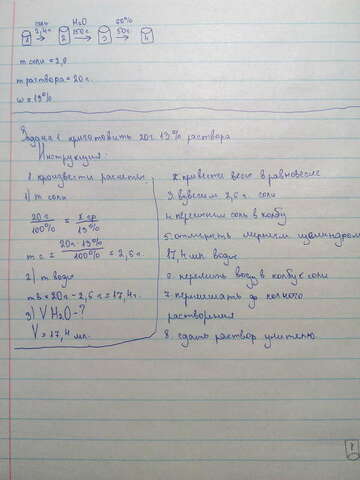 соль H₂O 60%
2,4 г 150 г 50 г
1 2 3 4
m соли = 2,8
m раствора = 20 г.
ω = 13%
Задача 1. приготовить 20г 13% раствора
Инструкция:
1. произвести расчеты
1) m соли
20 г / 100% = x гр / 13%
m с = 20г · 13% / 100% = 2,6 г
2) m воды
m в = 20г - 2,6 г = 17,4г.
3) V H₂O - ?
V = 17,4 мл.
2. привести весы в равновесие
3. взвесим 2,6 г. соли
4. перенесим соль в колбу
5. отмерить мерным цилиндром
17,4 мл воды
6. перелить воду в колбу к соли
7. перемешать до полного
растворения
8. сдать раствор учителю